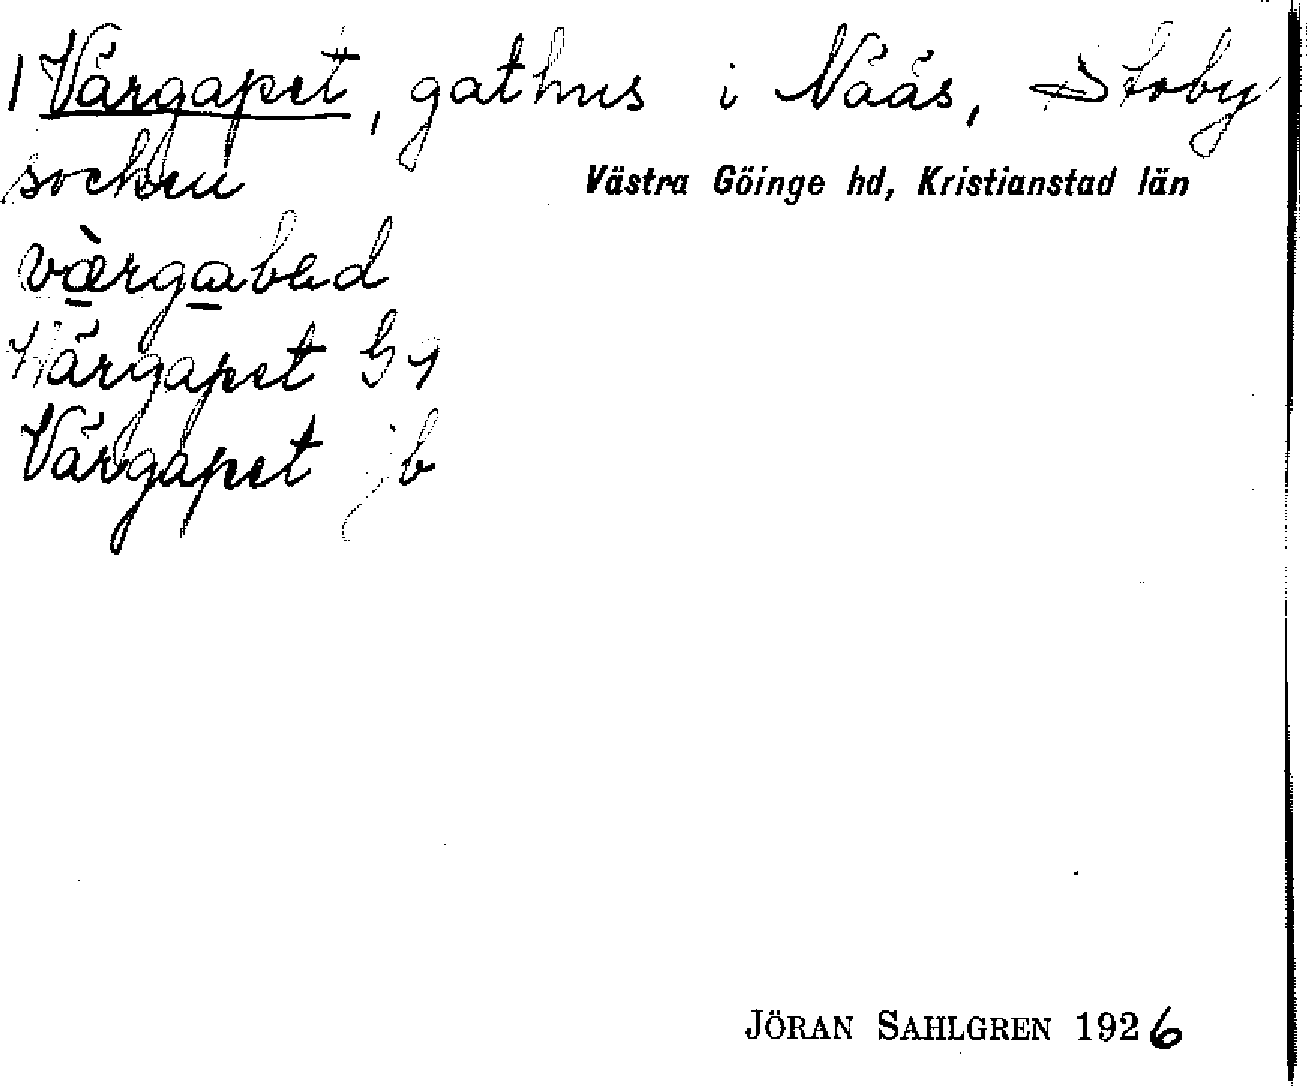 1 Värgapet, gathus i Nääs, Stoby
socken
Västra Göinge hd, Kristianstad län
värgabed
Wärgapet G 9
Värgapet jb
JÖRAN SAHLGREN 1926